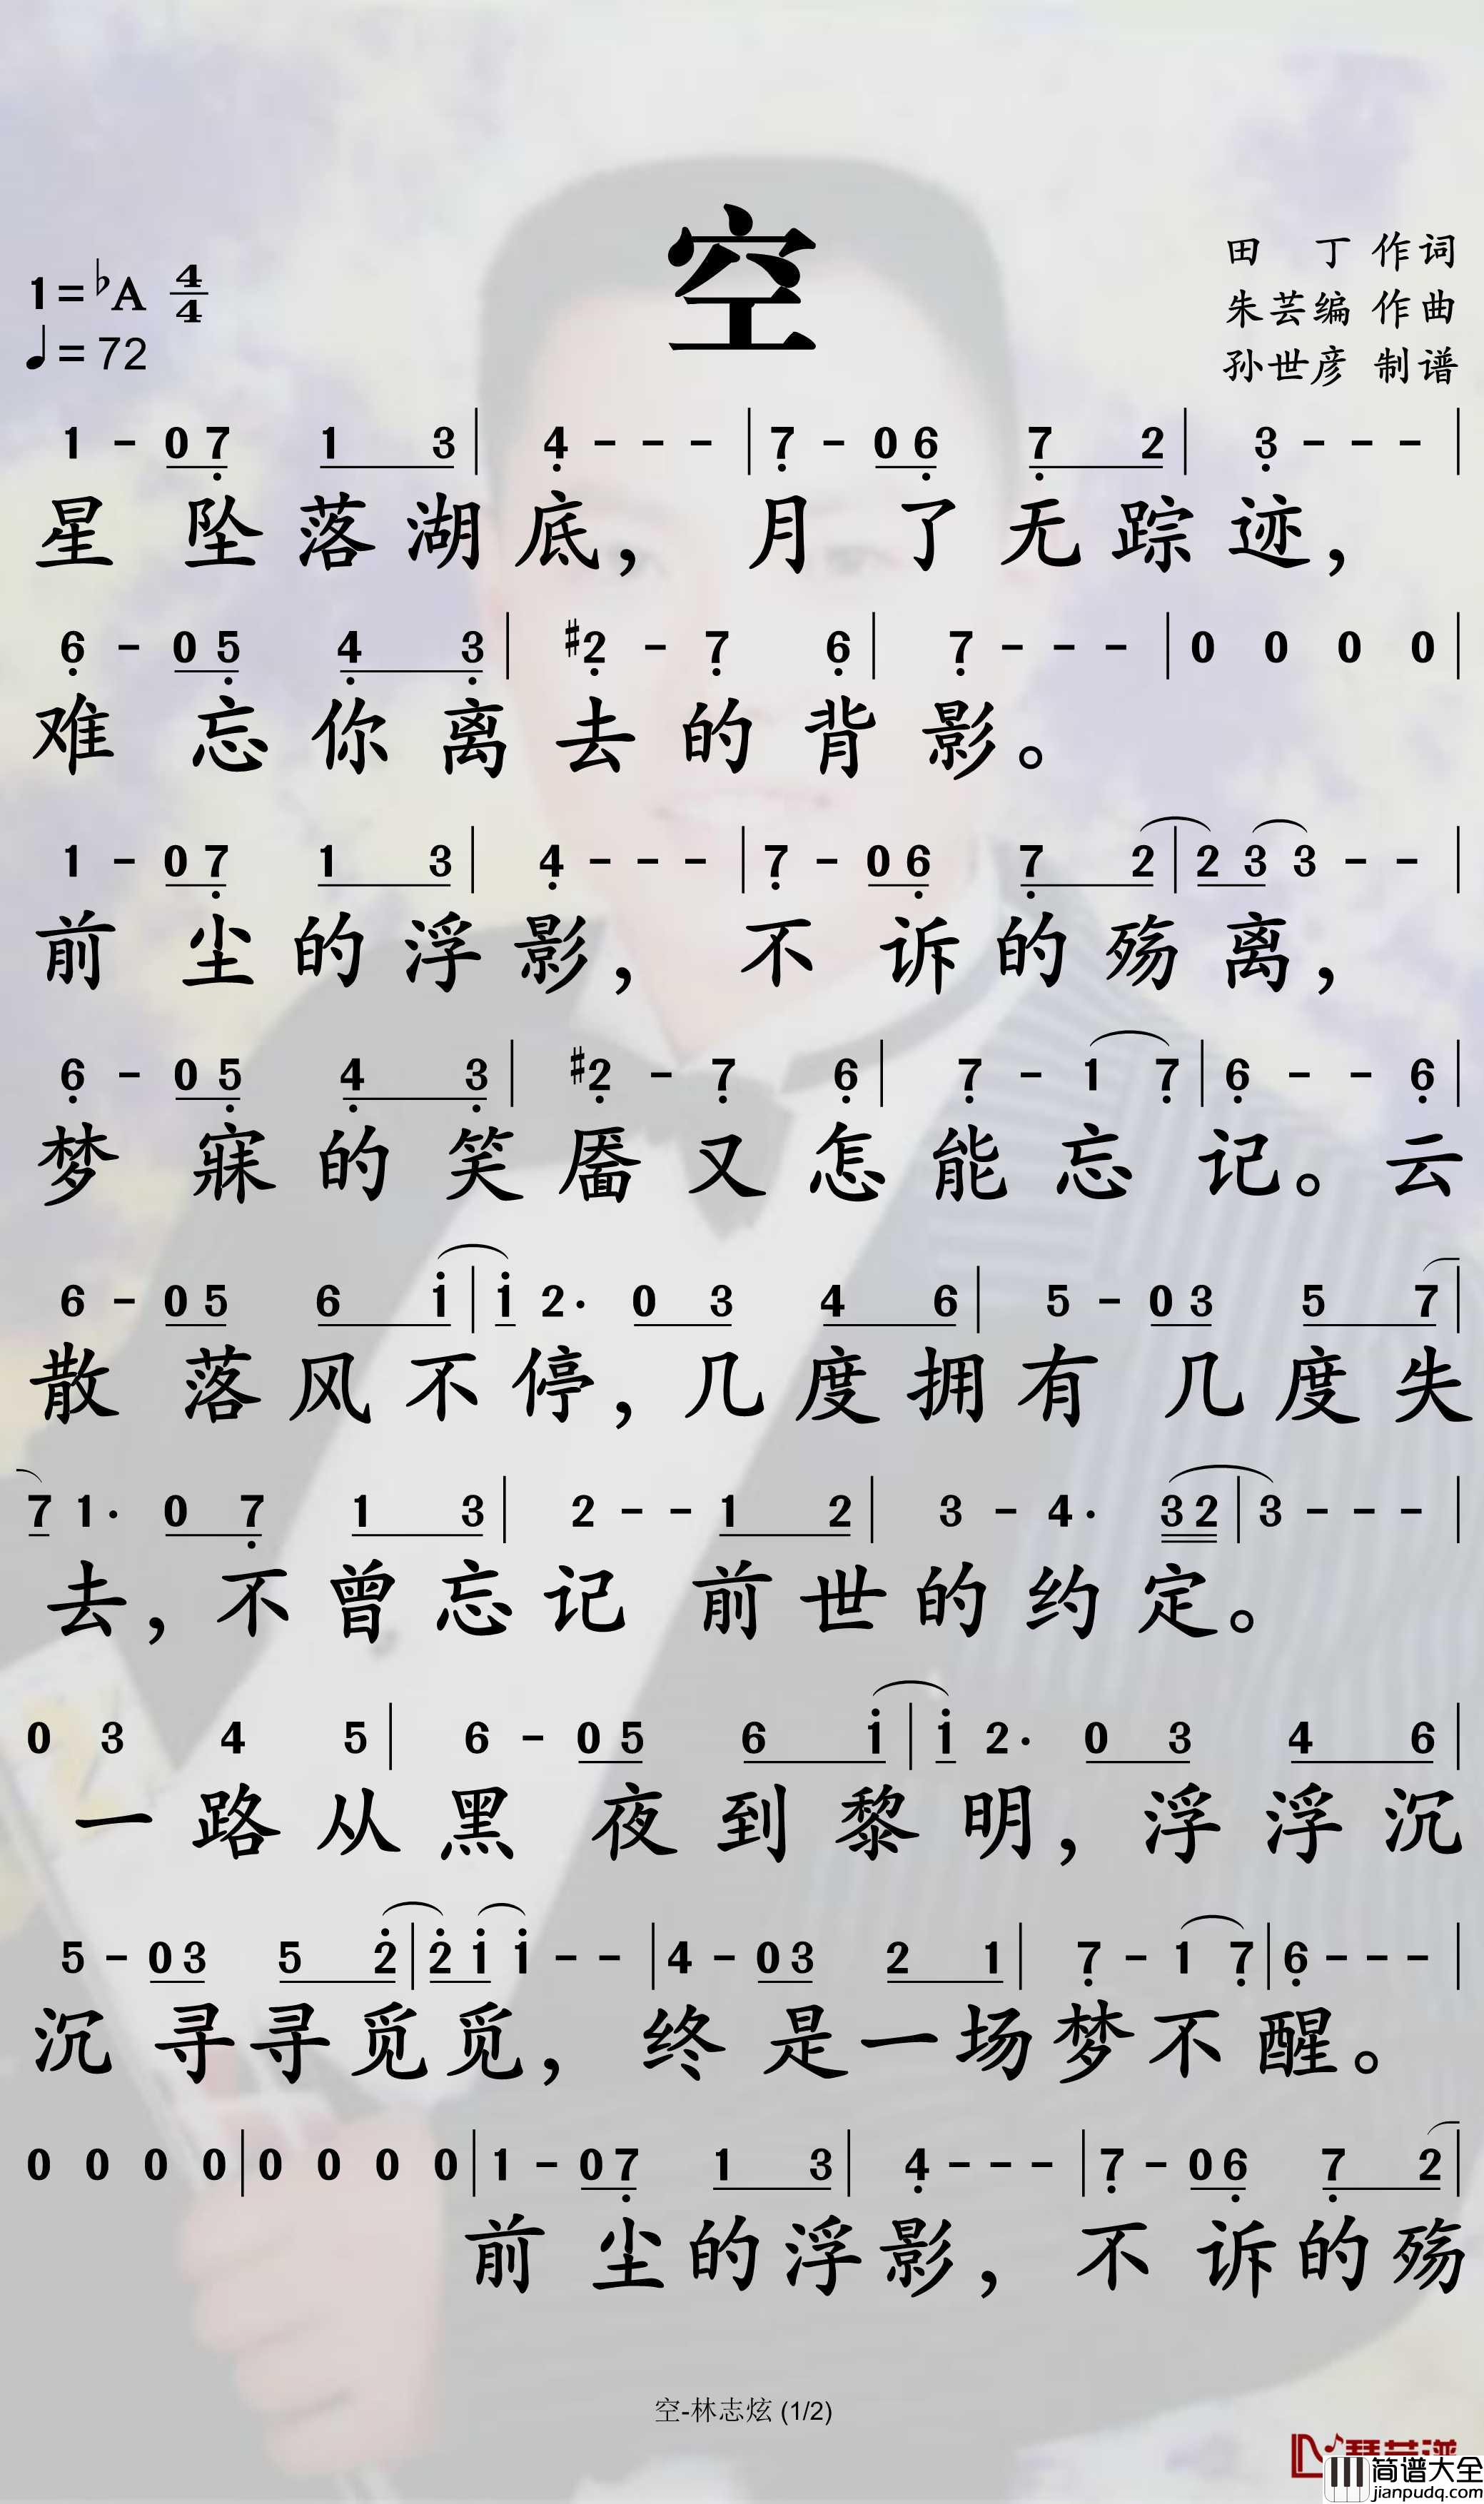 空
田 丁 作词
朱芸编 作曲
孙世彦 制谱
1=♭A 4/4
♩=72
1 - 0 7̣ 1 3 | 4̣ - - - | 7̣ - 0 6̣ 7̣ 2 | 3̣ - - - |
星 坠 落 湖 底， 月 了 无 踪 迹，
6̣ - 0 5̣ 4̣ 3̣ | #2̣ - 7̣ 6̣ | 7̣ - - - | 0 0 0 0 |
难 忘 你 离 去 的 背 影。
1 - 0 7̣ 1 3 | 4̣ - - - | 7̣ - 0 6̣ 7̣ 2 | 2 3 3 - - |
前 尘 的 浮 影， 不 诉 的 殇 离，
6̣ - 0 5̣ 4̣ 3̣ | #2̣ - 7̣ 6̣ | 7̣ - 1 7̣ | 6̣ - - 6̣ |
梦 寐 的 笑 靥 又 怎 能 忘 记。云
6 - 0 5 6 1̇ | 1̇ 2· 0 3 4 6 | 5 - 0 3 5 7 |
散 落 风 不 停， 几 度 拥 有 几 度 失
7 1· 0 7̣ 1 3 | 2 - - 1 2 | 3 - 4· 3 2 | 3 - - - |
去， 不 曾 忘 记 前 世 的 约 定。
0 3 4 5 | 6 - 0 5 6 1̇ | 1̇ 2· 0 3 4 6 |
一 路 从 黑 夜 到 黎 明， 浮 浮 沉
5 - 0 3 5 2̇ | 2̇ 1̇ 1̇ - - | 4 - 0 3 2 1 | 7̣ - 1 7̣ | 6̣ - - - |
沉 寻 寻 觅 觅， 终 是 一 场 梦 不 醒。
0 0 0 0 | 0 0 0 0 | 1 - 0 7̣ 1 3 | 4̣ - - - | 7̣ - 0 6̣ 7̣ 2 |
前 尘 的 浮 影， 不 诉 的 殇
空-林志炫 (1/2)
简谱大全
jianpudq.com